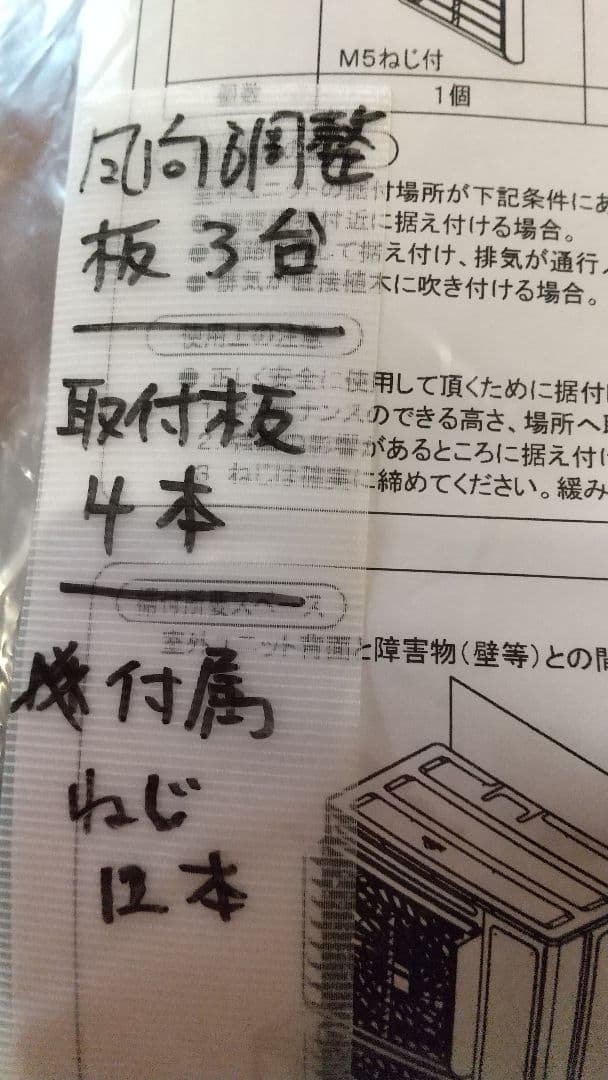 M5ねじ付
個数
1個
風向調整
板3台
取付板
4本
付属
ねじ
12本
場所が下記条件にあ
付近に据え付ける場合。
据え付け、排気が通行
に吹き付ける場合。
使用上の注意
正しく安全に使用して頂くために据付
のできる高さ、場所へ
があるところに据え付け
3 ねじは確実に締めてください。緩み
据付所要スペース
室外ユニット背面と障害物(壁等)との間